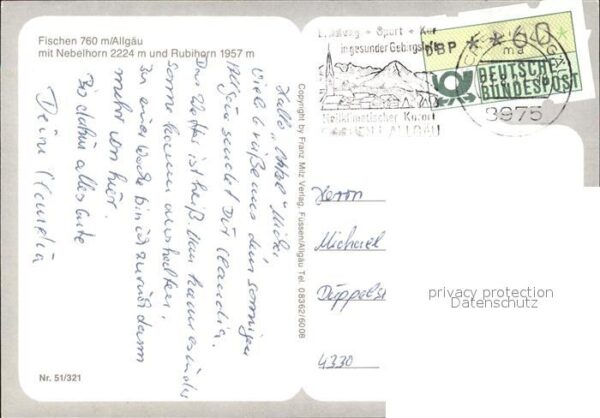 Fischen 760 m/Allgäu
mit Nebelhorn 2224 m und Rubihorn 1957 m
Hallo, Michi,
Viele Grüße aus dem sonnigen
Allgäu sendet Dir Claudia.
Das Wetter ist heiß. Man kann es in der
Sonne kaum aushalten.
In einer Woche bin ich zurück dann
mehr von hier.
Bis dahin alles Gute
Deine Claudia
Nr. 51/321
Copyright by Franz Milz Verlag, Füssen/Allgäu Tel. 08362/6008
Erholung - Sport - Kur
in gesunder Gebirgsluft
Heilklimatischer Kurort
FISCHEN I. ALLGÄU
8975
DBP **60
DEUTSCHE
BUNDESPOST
Herrn
Michael
Düppelst
4330
privacy protection
Datenschutz